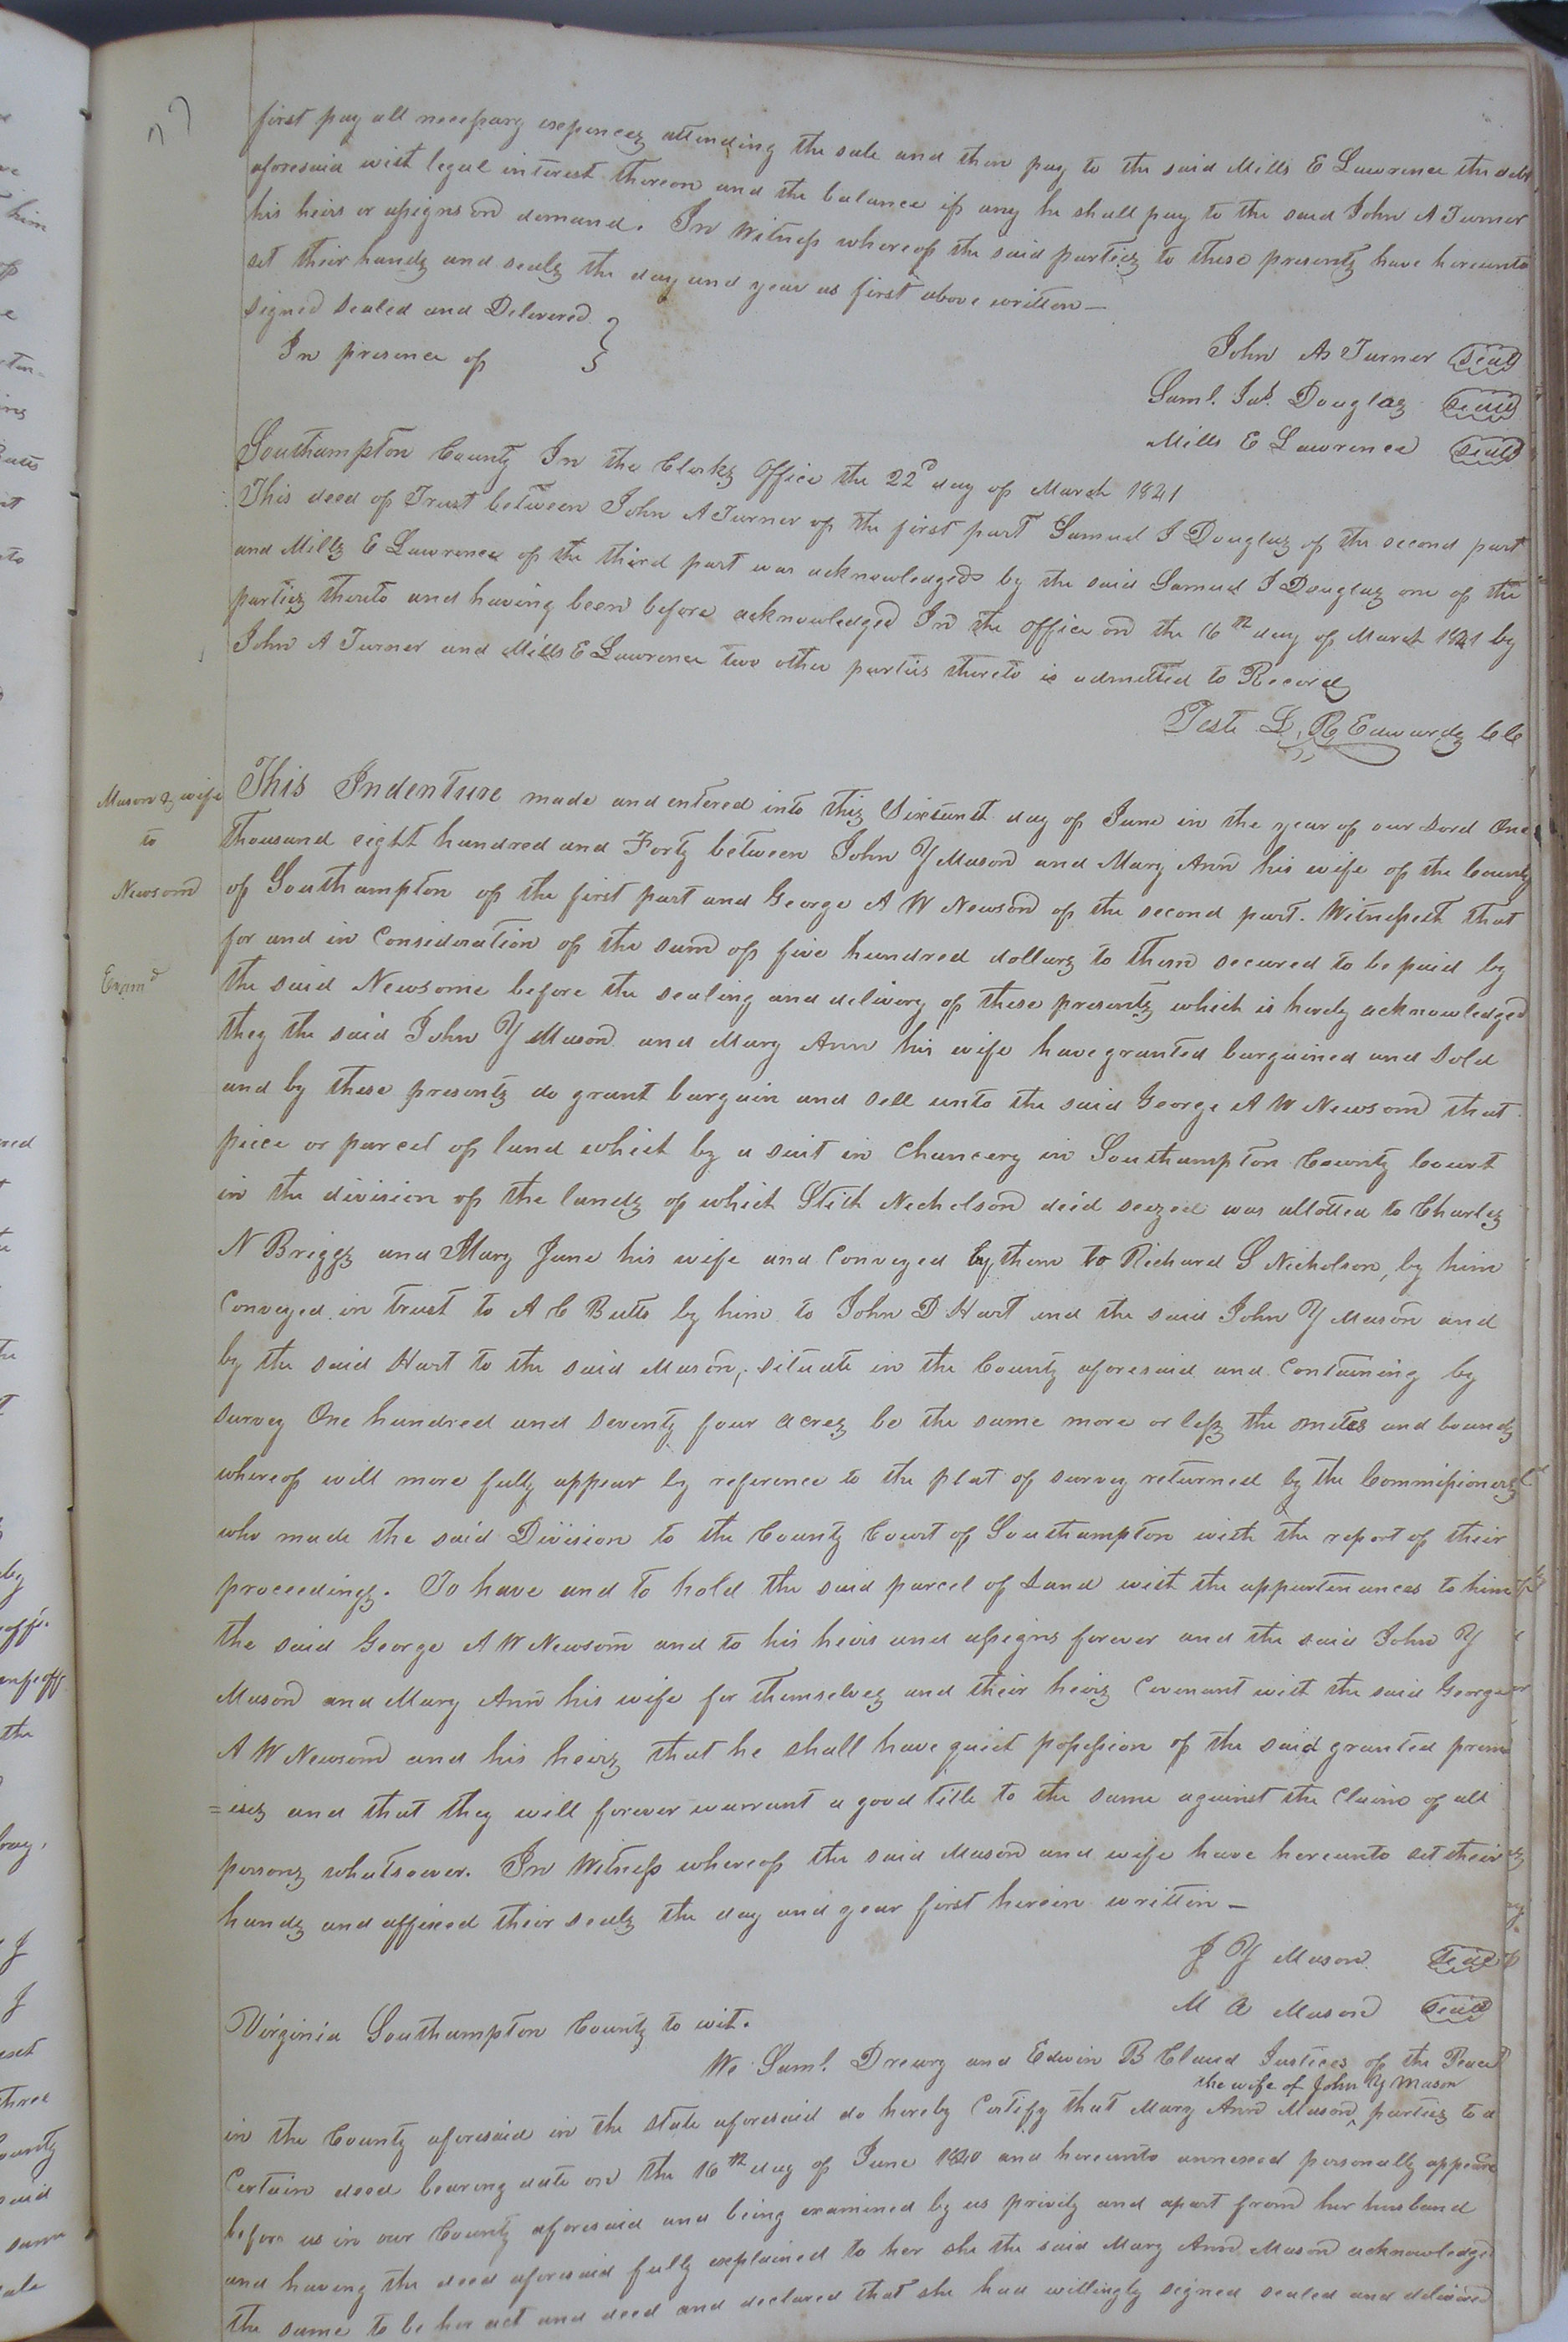 77
first pay all necessary expences attending the sale and then pay to the said Mills E Lawrence the debt
aforesaid with legal interest thereon and the balance if any he shall pay to the said John A Turner
his heirs or assigns on demand. In Witness whereof the said parties to these presents have hereunto
set their hands and seals the day and year as first above written —
Signed Sealed and Delivered }
In presence of
John A Turner Seal
Saml. Jas. Douglas Seal
Mills E Lawrence Seal
Southampton County In the Clerks Office the 22d day of March 1841
This deed of Trust between John A Turner of the first part Samuel J Douglas of the second part
and Mills E Lawrence of the third part was acknowledged by the said Samuel J Douglas one of the
parties thereto and having been before acknowledged In the office on the 16th day of March 1841 by
John A Turner and Mills E Lawrence two other parties thereto is admitted to Record
Teste L. R Edwards CC
Mason & wife
to
Newsom
Exam'd
This Indenture made and entered into this Sixteenth day of June in the year of our Lord One
thousand eight hundred and Forty between John Y Mason and Mary Ann his wife of the County
of Southampton of the first part and George A W Newsom of the second part. Witnesseth that
for and in Consideration of the sum of five hundred dollars to them secured to be paid by
the said Newsome before the sealing and delivery of these presents which is hereby acknowledged
they the said John Y Mason and Mary Ann his wife have granted bargained and sold
and by these presents do grant bargain and sell unto the said George A W Newsom that
piece or parcel of land which by a suit in Chancery in Southampton County Court
in the division of the lands of which Stith Nicholson died seized was allotted to Charles
N Briggs and Mary Jane his wife and Conveyed by them to Richard S Nicholson, by him
Conveyed in trust to A C Butts by him to John D Hart and the said John Y Mason and
by the said Hart to the said Mason, situate in the County aforesaid and Containing by
survey One hundred and seventy four acres be the same more or less the metes and bounds
whereof will more fully appear by reference to the plat of survey returned by the Commissioners
who made the said Division to the County Court of Southampton with the report of their
proceedings. To have and to hold the said parcel of Land with the appurtenances to him
the said George A W Newsom and to his heirs and assigns forever and the said John Y
Mason and Mary Ann his wife for themselves and their heirs Covenant with the said George
A W Newsom and his heirs that he shall have quiet possession of the said granted prem
=ises and that they will forever warrant a good title to the same against the Claims of all
persons whatsoever. In Witness whereof the said Mason and wife have hereunto set their
hands and affixed their seals the day and year first herein written —
J Y Mason Seal
M A Mason Seal
Virginia Southampton County to wit.
We Saml. Drewry and Edwin B Claud Justices of the Peace
the wife of John Y Mason
in the County aforesaid in the State aforesaid do hereby Certify that Mary Ann Mason ‸ parties to a
Certain deed bearing date on the 16th day of June 1840 and hereunto annexed personally appeare
before us in our County aforesaid and being examined by us privily and apart from her husband
and having the deed aforesaid fully explained to her she the said Mary Ann Mason acknowledged
the same to be her act and deed and declared that she had willingly signed sealed and delivered